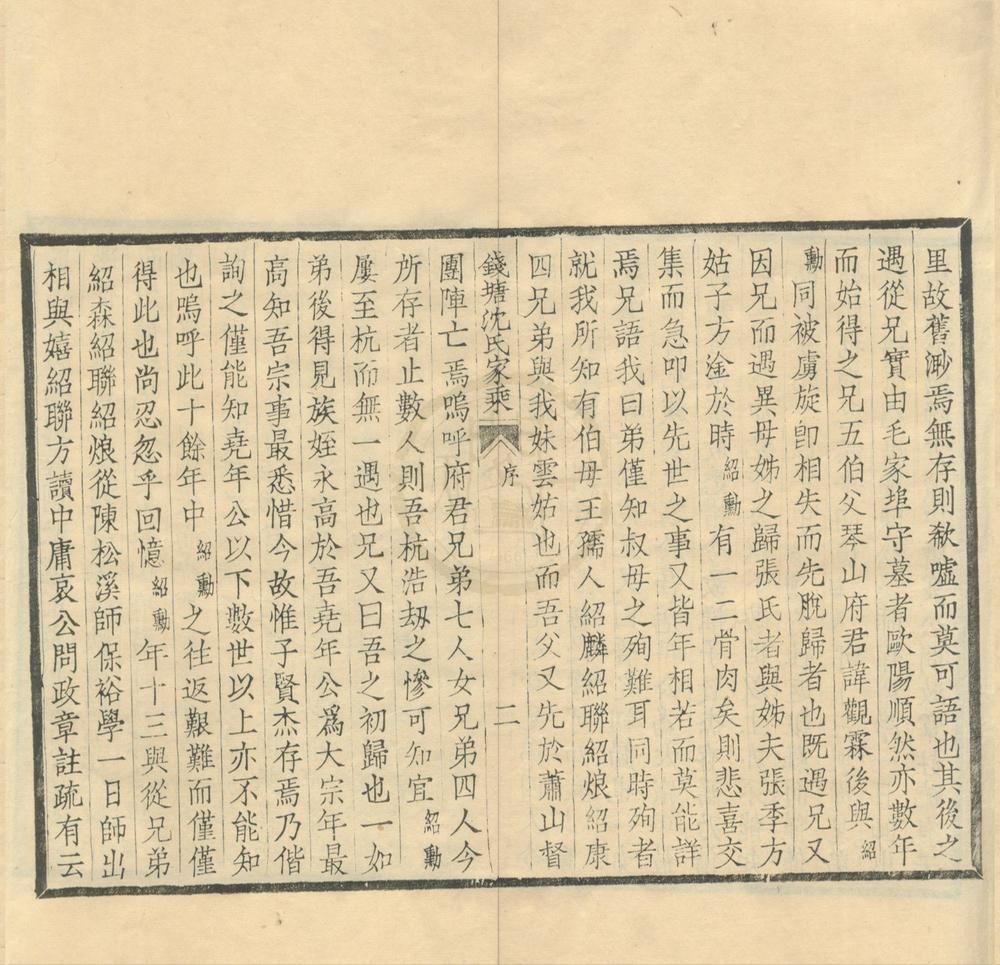 里故舊渺焉無存則欷噓而莫可語也其後之
遇從兄實由毛家埠守墓者歐陽順然亦數年
而始得之兄五伯父琴山府君諱觀霖後與紹
勳同被虜旋卽相失而先脫歸者也既遇兄又
因兄而遇異母姊之歸張氏者與姊夫張季方
姑子方淦於時紹勳有一二骨肉矣則悲喜交
集而急叩以先世之事又皆年相若而莫能詳
焉兄語我曰弟僅知叔母之殉難耳同時殉者
就我所知有伯母王孺人紹麟紹聯紹烺紹康
四兄弟與我妹雲姑也而吾父又先於蕭山督
錢塘沈氏家乘 序 二
團陣亡焉嗚呼府君兄弟七人女兄弟四人今
所存者止數人則吾杭浩劫之慘可知宜紹勳
屢至杭而無一遇也兄又曰吾之初歸也一如
弟後得見族姪永高於吾堯年公爲大宗年最
高知吾宗事最悉惜今故惟子賢杰存焉乃偕
詢之僅能知堯年公以下數世以上亦不能知
也嗚呼此十餘年中紹勳之往返艱難而僅僅
得此也尚忍忽乎回憶紹勳年十三與從兄弟
紹森紹聯紹烺從陳松溪師保裕學一日師出
相與嬉紹聯方讀中庸哀公問政章註疏有云